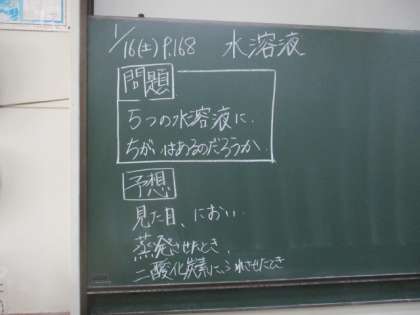 1/16(土) P.168 水溶液
問題
5つの水溶液に、
ちがいはあるのだろうか。
予想
見た目、におい
蒸発させたとき、
二酸化炭素にふれさせたとき